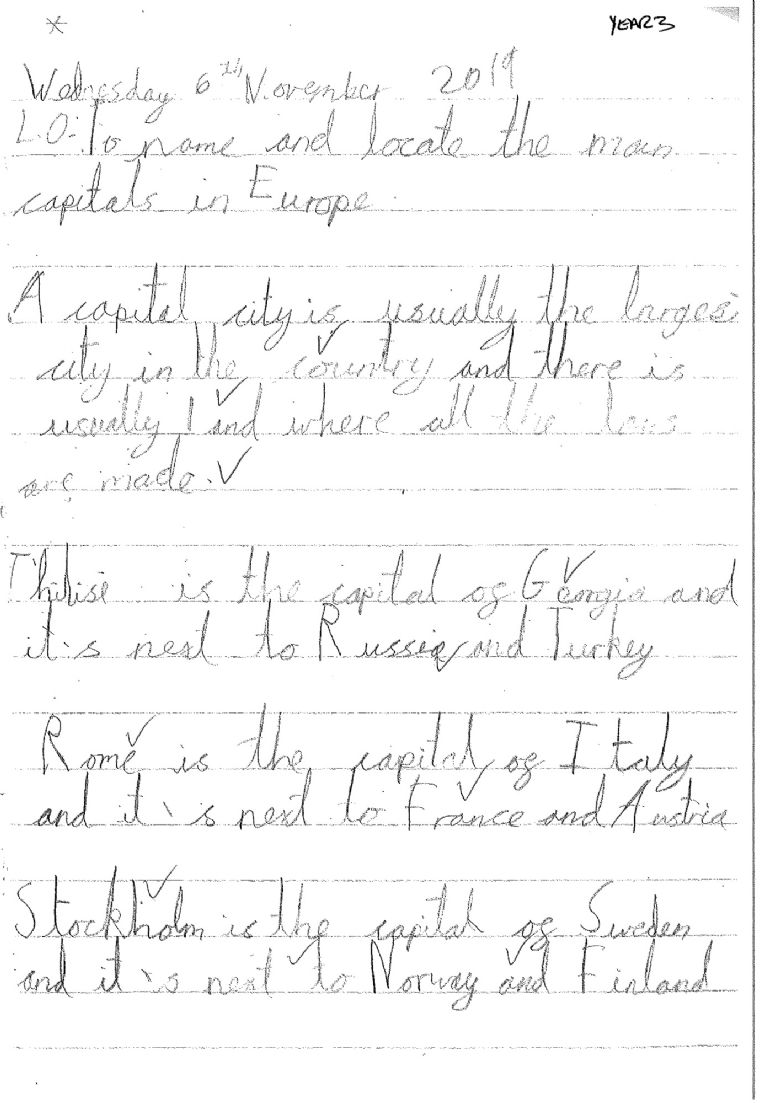 YEAR3
Wednesday 6th November 2019
L.O: To name and locate the main
capitals in Europe.
A capital city is usually the larges
city in the country and there is
usually 1 and where all the laws
are made.
is the capital og Georgia and
it's next to Russia and Turkey
Rome is the capital og Italy
and it's next to France and Austria
Stockholm is the capital og Sweden
and it's next to Norway and Finland